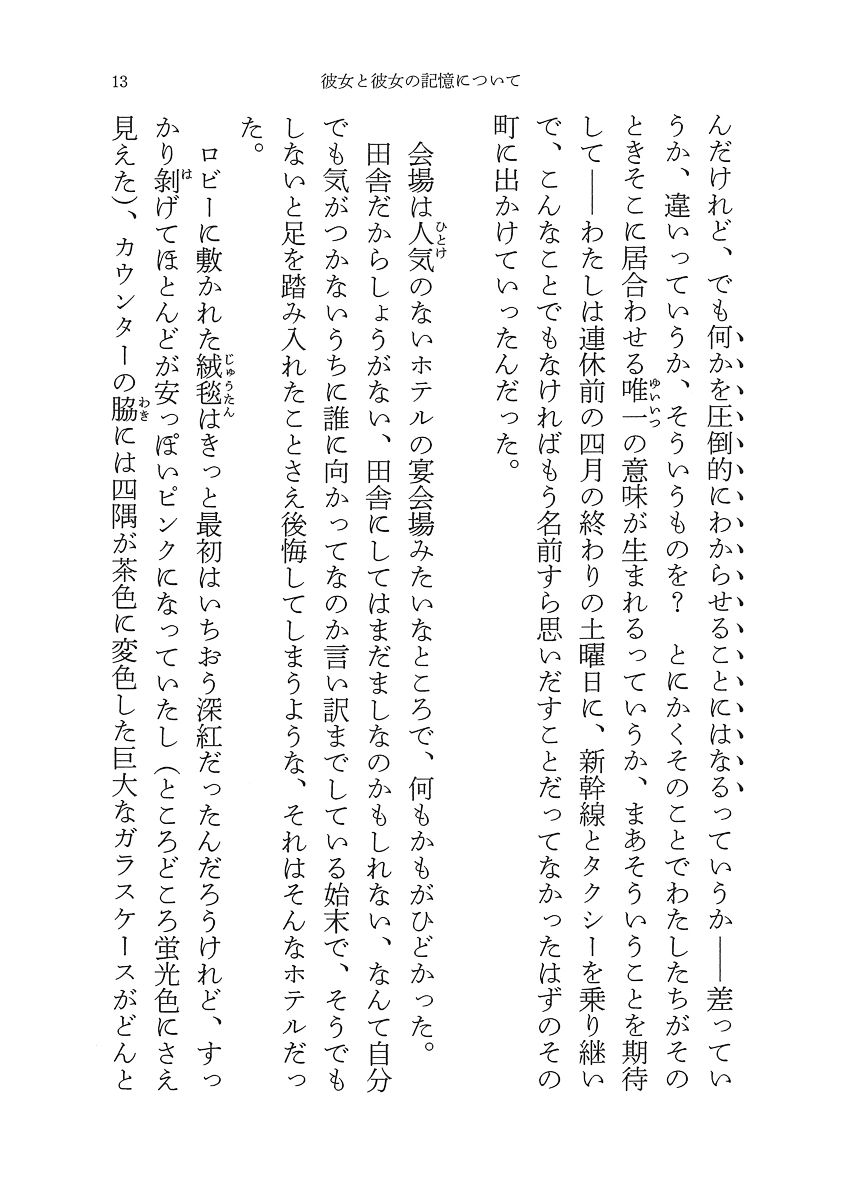 13
彼女と彼女の記憶について
んだけれど、でも何かを圧倒的にわからせることにはなるっていうか――差ってい
うか、違いっていうか、そういうものを？　とにかくそのことでわたしたちがその
ときそこに居合わせる唯一の意味が生まれるっていうか、まあそういうことを期待
ゆいいつ
して――わたしは連休前の四月の終わりの土曜日に、新幹線とタクシーを乗り継い
で、こんなことでもなければもう名前すら思いだすことだってなかったはずのその
町に出かけていったんだった。
会場は人気のないホテルの宴会場みたいなところで、何もかもがひどかった。
ひとけ
田舎だからしょうがない、田舎にしてはまだましなのかもしれない、なんて自分
でも気がつかないうちに誰に向かってなのか言い訳までしている始末で、そうでも
しないと足を踏み入れたことさえ後悔してしまうような、それはそんなホテルだっ
た。
ロビーに敷かれた絨毯はきっと最初はいちおう深紅だったんだろうけれど、すっ
じゅうたん
かり剝げてほとんどが安っぽいピンクになっていたし（ところどころ蛍光色にさえ
は
見えた）、カウンターの脇には四隅が茶色に変色した巨大なガラスケースがどんと
わき